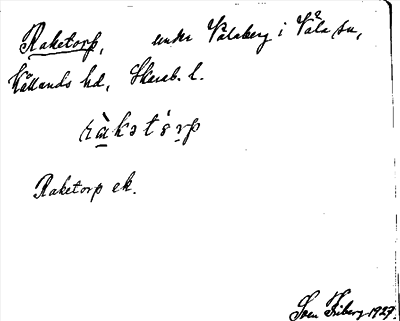 Raketorp, under Vålaberg i Våla sn,
Kållands hd, Skarab. l.
ràkɘtórp
Raketorp ek.
Sven Friberg 1927.